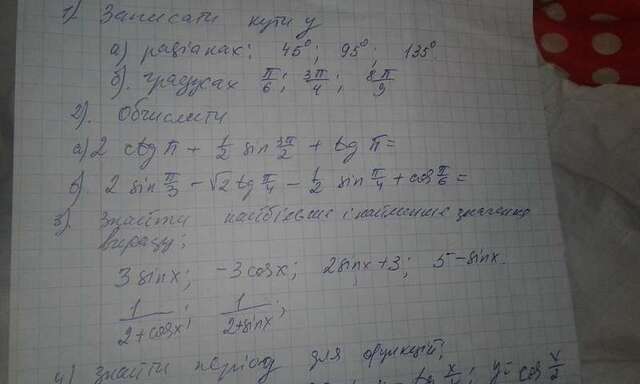 1) Записати кути у
а) радіанах: 45°; 95°; 135°.
б). градусах π/6; 3π/4; 8π/9
2). Обчислити
а) 2 ctg π + 1/2 sin 3π/2 + tg π =
б). 2 sin π/3 - √2 tg π/4 - 1/2 sin π/4 + cos π/6 =
3). Знайти найбільше і найменше значення
виразу:
3 sinx; -3 cosx; 2sinx+3; 5-sinx.
1/(2+cosx); 1/(2+sinx);
4) Знайти період для функцій;
tg x/ ; y= cos x/2